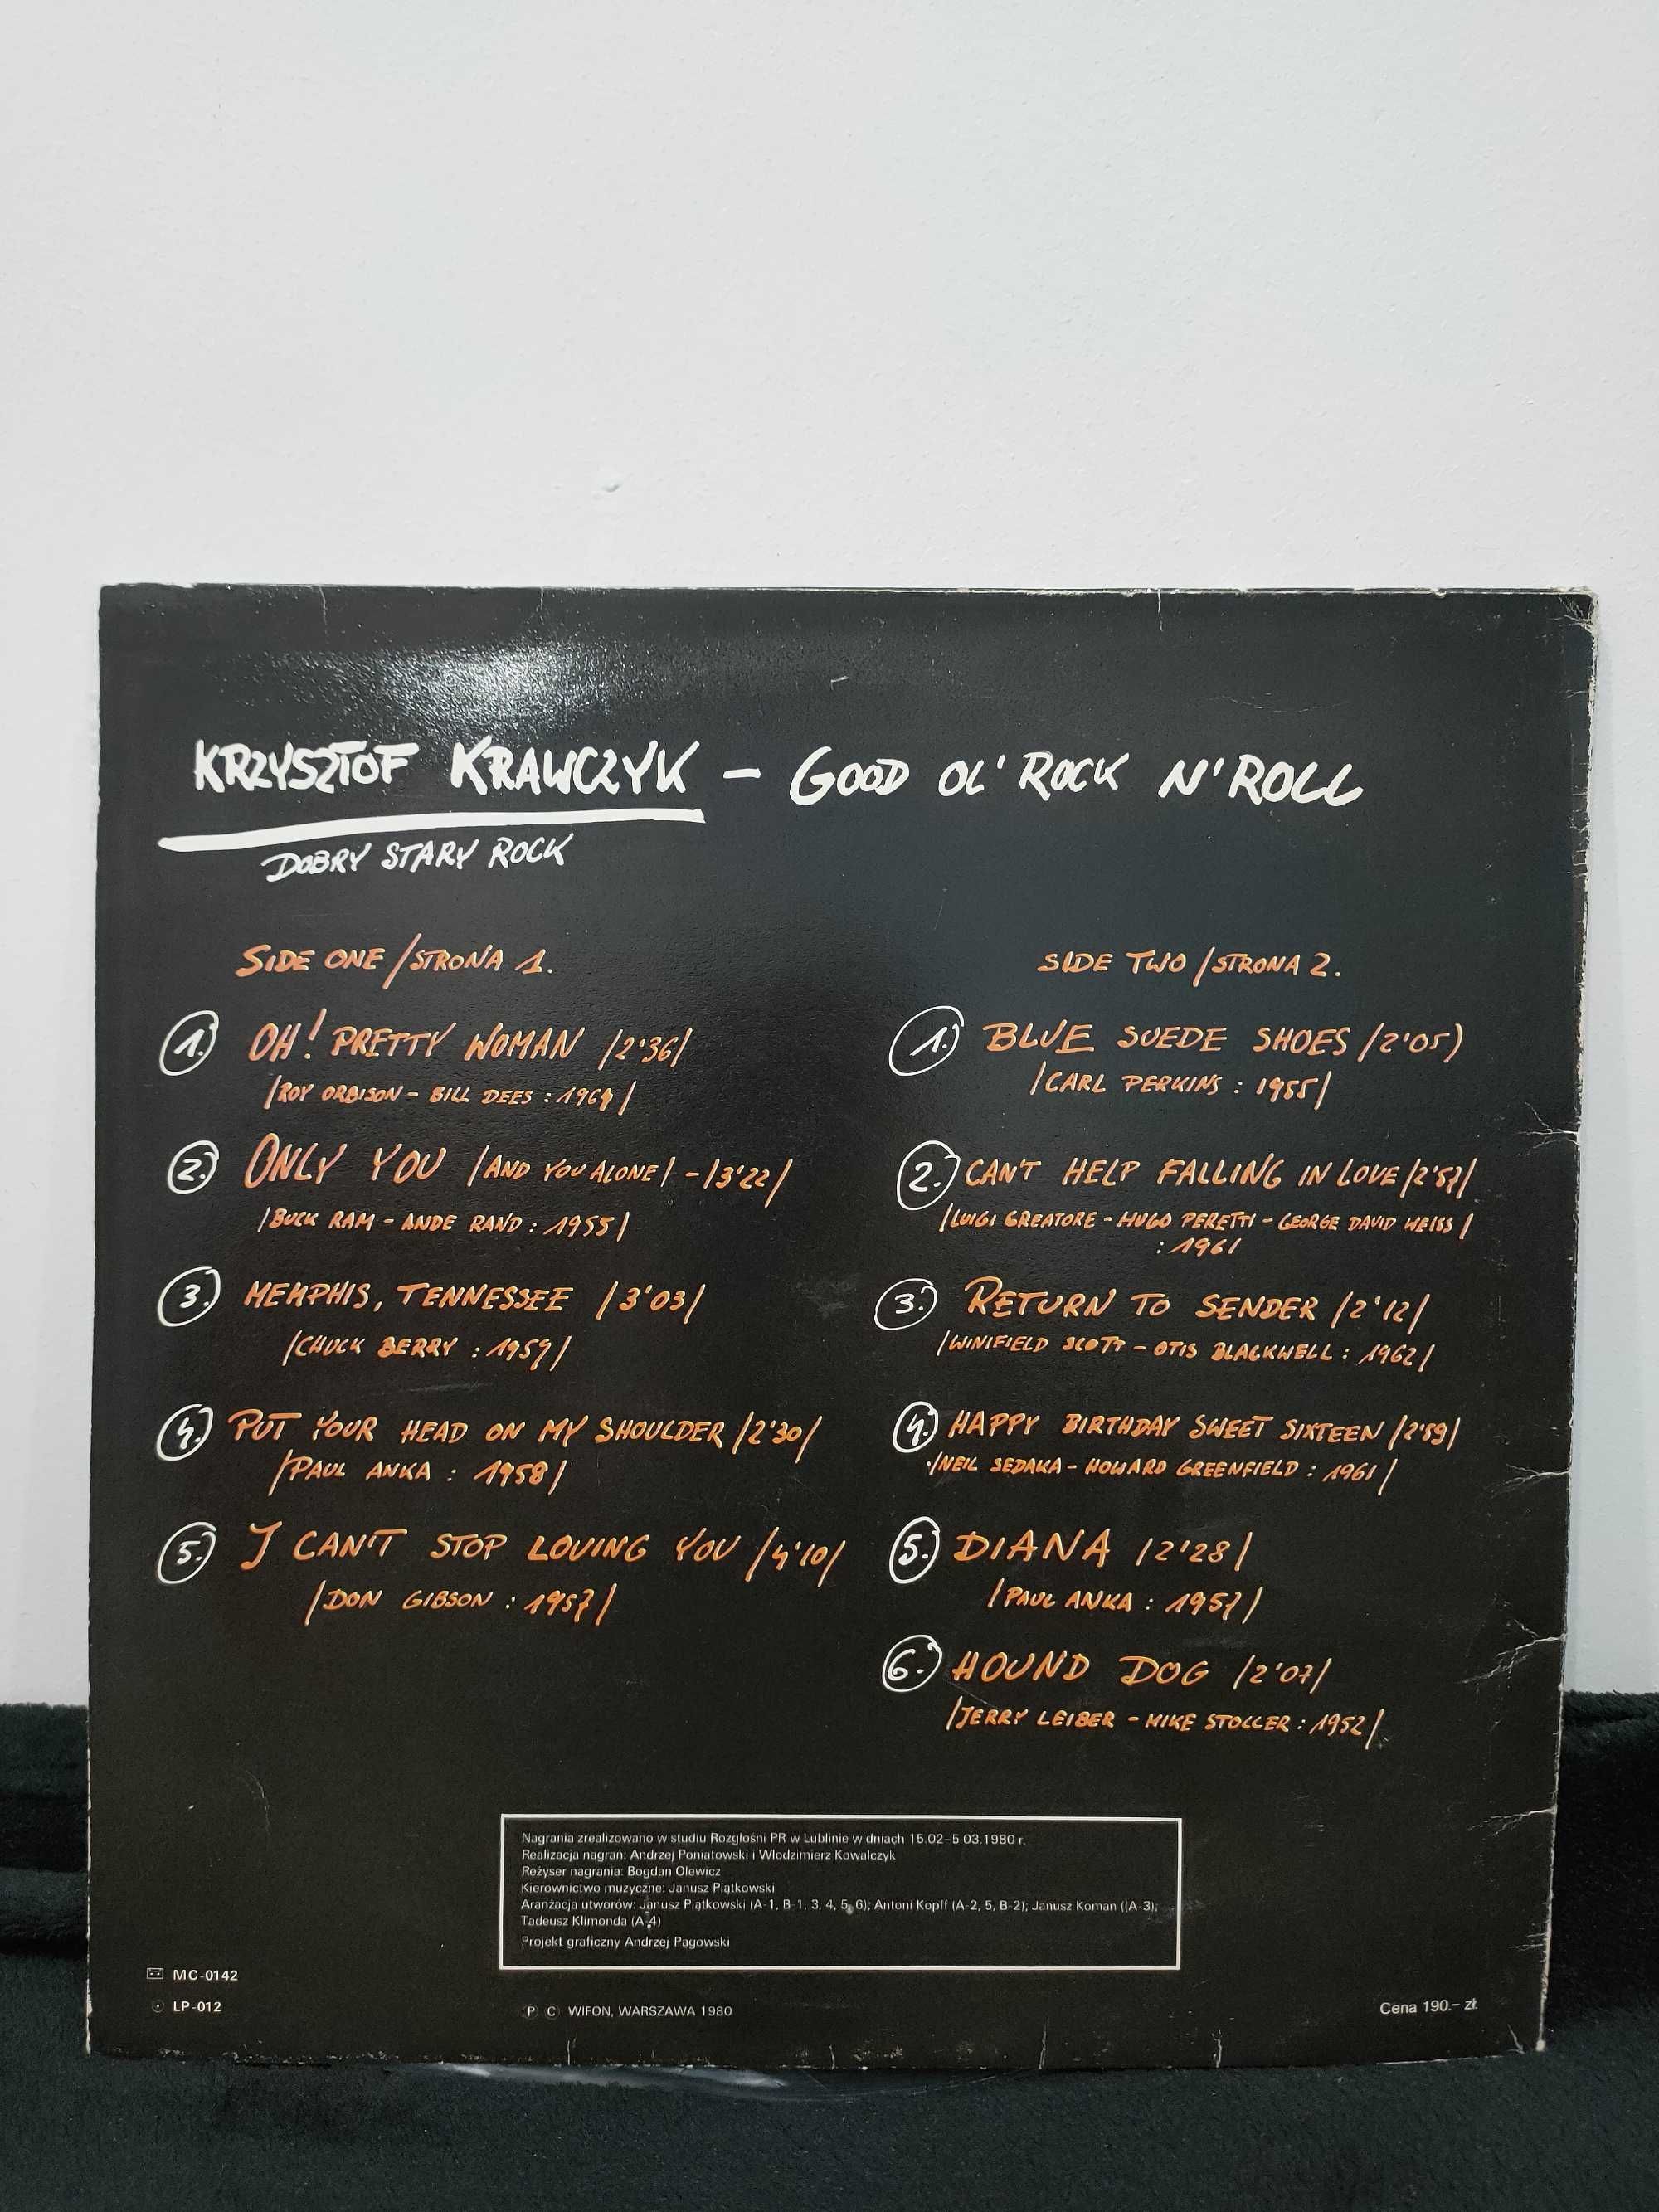 KRZYSZTOF KRAWCZYK – GOOD OL' ROCK N' ROLL
DOBRY STARY ROCK
SIDE ONE /STRONA 1.
1. OH! PRETTY WOMAN /2'36/
/ROY ORBISON - BILL DEES : 1964/
2. ONLY YOU /AND YOU ALONE/ - /3'22/
/BUCK RAM - ANDE RAND : 1955/
3. MEMPHIS, TENNESSEE /3'03/
/CHUCK BERRY : 1959/
4. PUT YOUR HEAD ON MY SHOULDER /2'30/
/PAUL ANKA : 1958/
5. I CAN'T STOP LOVING YOU /4'10/
/DON GIBSON : 1957/
SIDE TWO /STRONA 2.
1. BLUE SUEDE SHOES /2'05)
/CARL PERKINS : 1955/
2. CAN'T HELP FALLING IN LOVE /2'57/
/LUIGI CREATORE - HUGO PERETTI - GEORGE DAVID WEISS/
: 1961
3. RETURN TO SENDER /2'12/
/WINIFIELD SCOTT - OTIS BLACKWELL : 1962/
4. HAPPY BIRTHDAY SWEET SIXTEEN /2'59/
/NEIL SEDAKA - HOWARD GREENFIELD : 1961/
5. DIANA /2'28/
/PAUL ANKA : 1957/
6. HOUND DOG /2'07/
/JERRY LEIBER - MIKE STOLLER : 1952/
Nagrania zrealizowano w studiu Rozgłośni PR w Lublinie w dniach 15.02–5.03.1980 r.
Realizacja nagrań: Andrzej Poniatowski i Włodzimierz Kowalczyk
Reżyser nagrania: Bogdan Olewicz
Kierownictwo muzyczne: Janusz Piątkowski
Aranżacja utworów: Janusz Piątkowski (A-1, B-1, 3, 4, 5, 6); Antoni Kopff (A-2, 5, B-2); Janusz Koman ((A-3);
Tadeusz Klimonda (A-4)
Projekt graficzny Andrzej Pągowski
MC-0142
LP-012
P C WIFON, WARSZAWA 1980
Cena 190.– zł